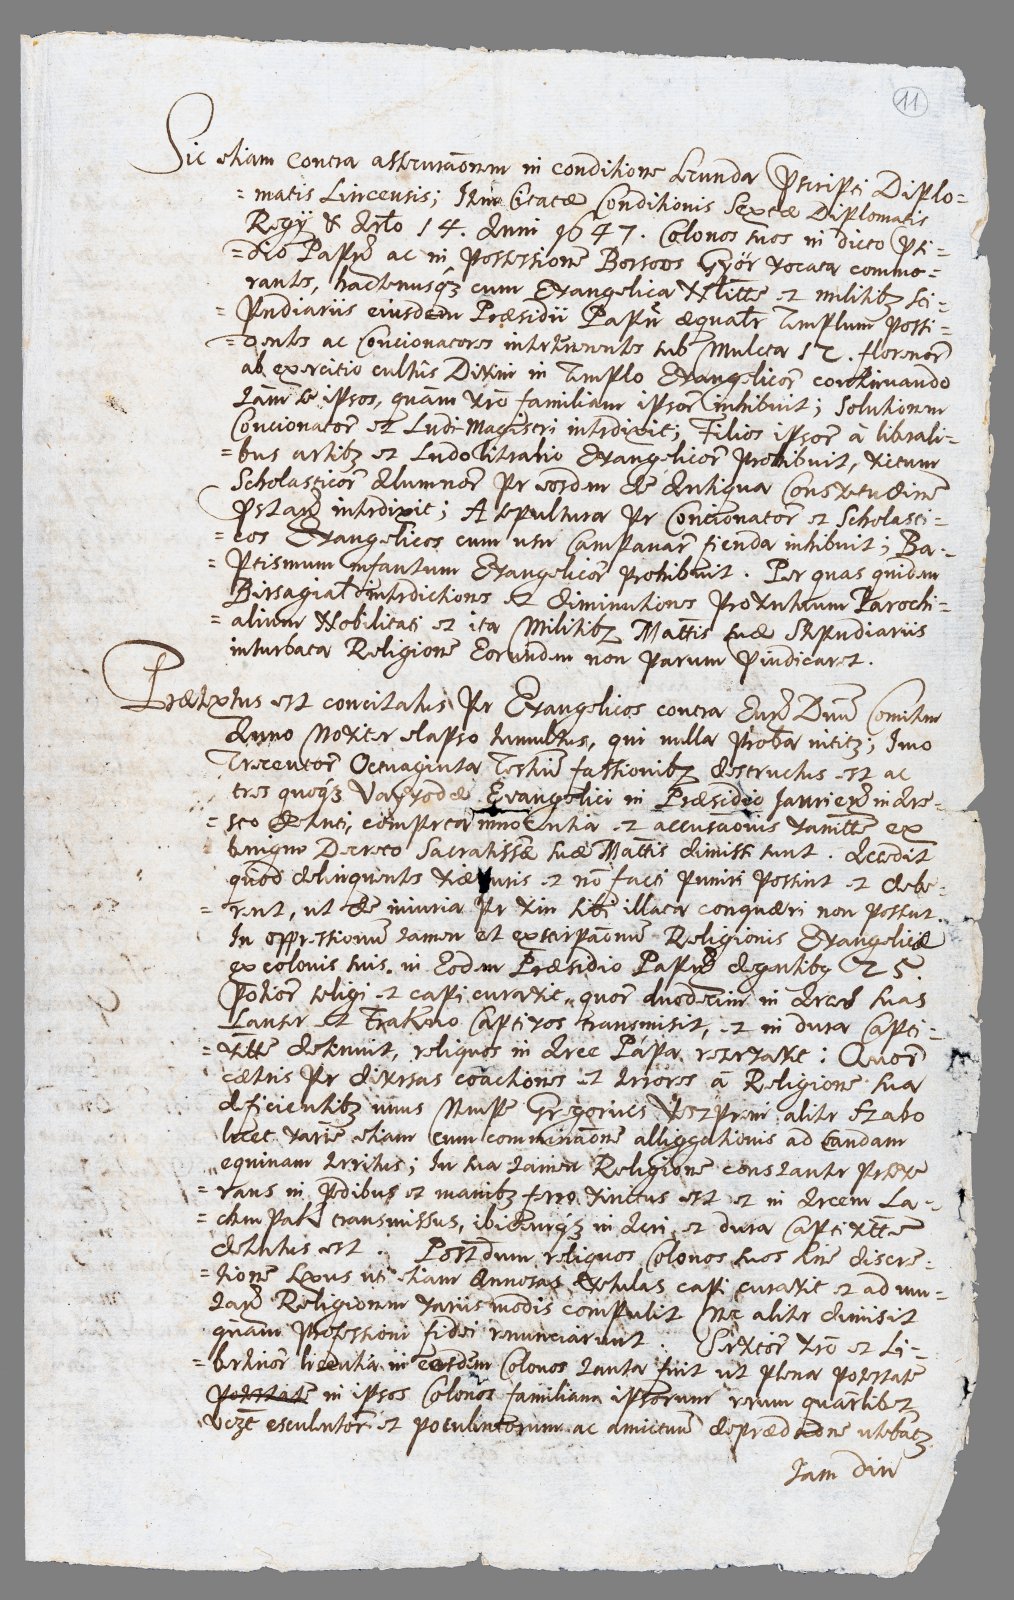 11
Sic etiam contra assecurãonem in conditione secunda Pscripti Diplo-
= matis Lincensis; Item citatæ Conditionis Sextæ Diplomatis
Regÿ & Artlo 14. Anni 1647. Colonos suos in dicto Psi-
= dio Papen̄ ac in Possessione Borsoos Gÿör vocata commo-
rantes, hactenusq̃ cum Evangelica Nobilitte et militibȝ sti-
= pendiariis eiusdem Præsidii Papen̄ æqualr̄ Templum possi-
= dentes ac Concionatores intertenentes sub Mulcta 12. florenor̄
ab exercitio cultûs Divini in Templo Evangelicor̄ continuando
tàm se ipsos, quàm verò familiam ipsor̄ inhibuit; Solutionem
Concionator̄ et Ludi-Magistri interdixit; Filios ipsor̄ à liberali-
= bus artibȝ et Ludo literario Evangelicor̄ prohibuit, victum
Scholasticor̄ Alumnor̄ per eosdem de Antiqua Consvetudine
Pstand̄ interdixit; A sepultura per Concionator̄ et Scholasti-
= cos Evangelicos cum usu Campanar̄ fienda inhibuit; Ba-
= ptismum infantum Evangelicor̄ prohibuit. Per quas quidem
Birsagial̄ interdictiones et diminutiones Proventuum Parochi-
= alium Nobilitati et ita Militibȝ Mattis suæ Stipendiariis
inturbata Religione Eorundem non parum Piudicaret.
Prætextus est concitatus per Evangelicos contra Eund̄ Dnū Comitem
Anno Noviter elapso tumultus, qui nulla proba nititȝ; Imo
Trecentor̄ Octuaginta Testiū fassionibȝ destructus est ac
tres quoq̃ Vayvodæ Evangelici in Præsidio Jaurien̄ in Are-
= sto detenti, comperta innocentia et accusãonis vanitte ex
benigno Decreto Sacratissæ suæ Mattis dimissi sunt. Accedit
quod delinquentes viæ Iuris et nõ facti puniri possint et debe-
= rent, ut de iniuria per vim sibi illata conquæri non possint.
In oppressionem tamen et extirpãonem Religionis Evangelicæ
ex colonis suis in Eodem Præsidio Papen̄ degentibȝ 25.
Potior̄ seligi et capi curavit, quor̄ duodecim in Arces suas
Lanser et Frakno captivos transmisit, et in dura Capti-
= vitte detinuit, reliquos in Arce Pápa reservavit: Quor̄
cæteris per diversas coactiones et terrores à Religione sua
deficientibȝ unus Nempe Gregorius Veszpremi aliter Szabo
licet variè etiam cum comminãone alligationis ad Caudam
equinam territus; In sua tamen Religione constanter perseve
= rans in pedibus et manibȝ ferro vinctus est et in Arcem La-
= chempah transmissus, ibidemq̃ in Acri et dura Captivitte
detentus est. Postdum reliquos Colonos suos sine discre-
= tione sexus uti etiam Annosas Vetulas capi curavit et ad mu-
tand̄ Religionem variis modis compulit Nec aliter dimisit
quàm professioni fidei renunciarunt. Servitor̄ verò et Li-
= bertinor̄ licentia in eosdem Colonos tanta fuit ut plena potestate
potestate in ipsos Colonos familiam ipsorum rerum quarlibet
uczt̄ esculentor̄ et poculentorum ac amictuum deprædãone utebatȝ.
Iam diu